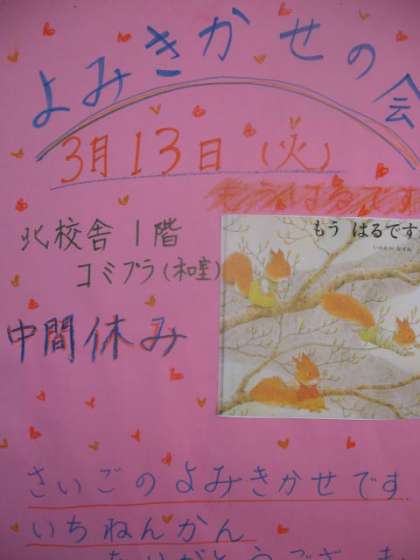 よみきかせの会
3月13日(火)
もうはるです
もう はるです
北校舎1階
コミプラ(和室)
中間休み
さいごのよみきかせです
いちねんかん